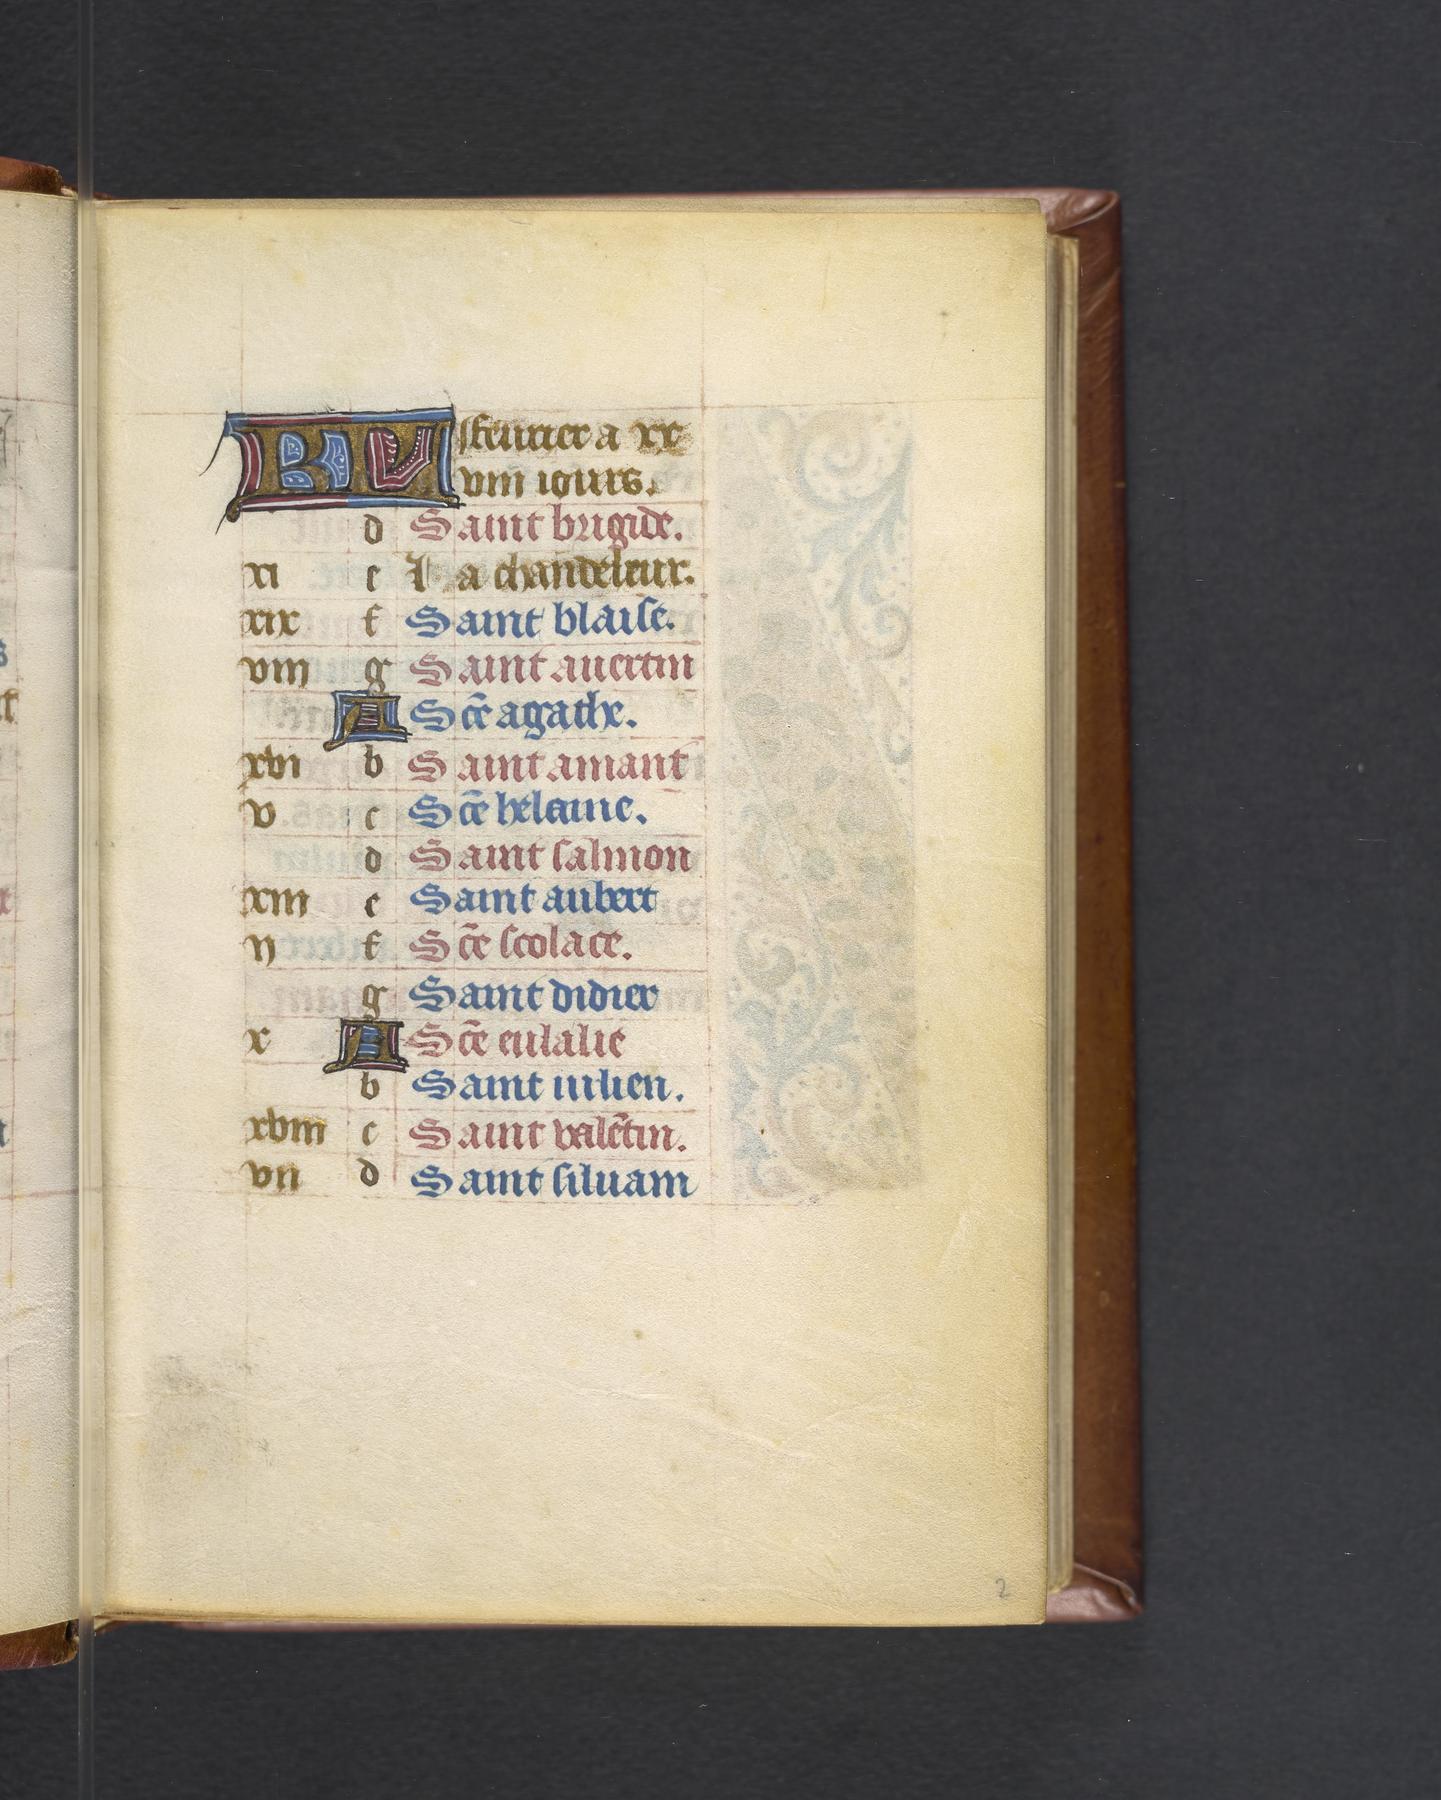 KL feurier a xx
viii iours.
d Saint brigide.
xi e La chandeleur.
xix f Saint blaise.
viii g Saint auertin
A Sce agathe.
xvi b Saint amant
v c Sce helaine.
d Saint salmon
xiii e Saint aubert
ij f Sce scolace.
g Saint didier
x A Sce eulalie
b Saint iulien.
xviii c Saint valētin.
vii d Saint siluain
2